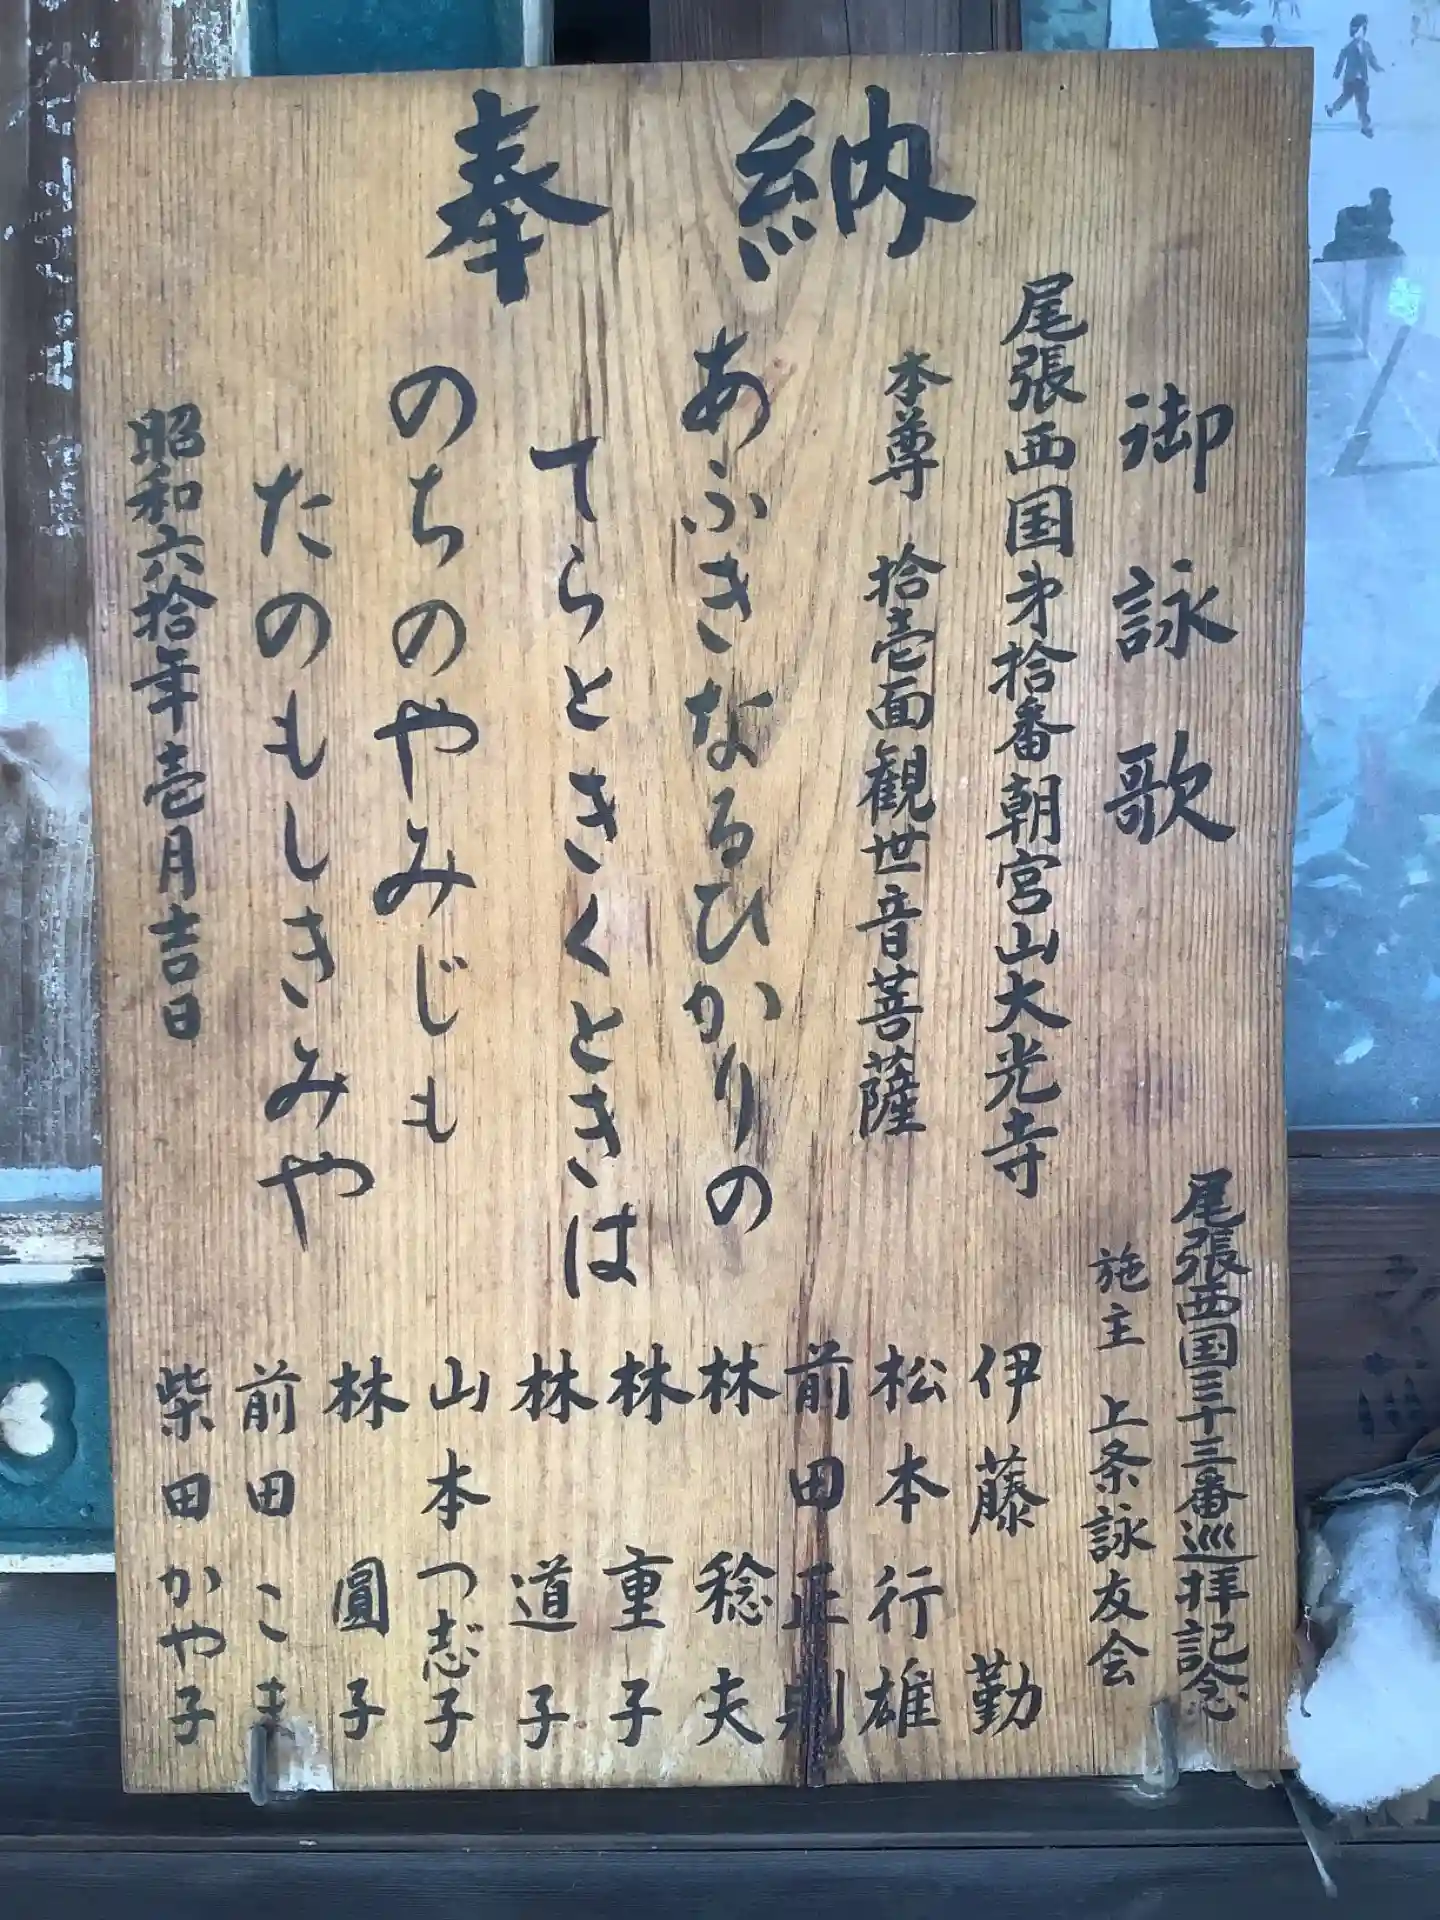 奉納
御詠歌
尾張西国才拾番朝宮山大光寺
本尊 拾壱面観世音菩薩
あふきなるひかりの
てらときくときは
のちのやみじも
たのもしきみや
昭和六拾年壱月吉日
尾張西国三十三番巡拝記念
施主 上条詠友会
伊藤 勤
松本行雄
前田正則
林 稔夫
林 重子
林 道子
山本つ志゛子
林 圓子
前田こま
柴田かや子